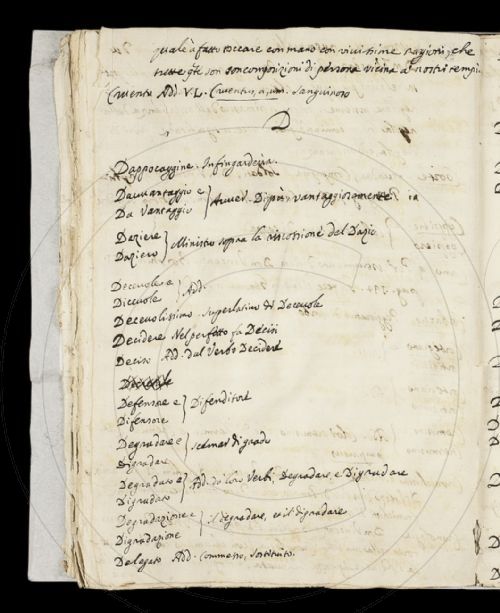 quale à fatto toccare con mano con vivissime ragioni, che
tutte son composizioni di persona vicina a' nostri tempi.
Cruento Add. V.L. Cruentus, a, um. Sanguinoso
D
Dappocaggine. Infingardia.
Davvantaggio e
Da Vantaggio } Avver. Di più vantaggiosamente
Daziere
Daziero } Ministro sopra la riscossione del Dazio
Decevole e
Dicevole } Add.
Decevolissimo Superlativo di Decevole
Decidere Nel perfetto fa Decisi
Deciso Add. dal Verbo Decidere
Defensore e
Difensore } Difenditore
Degradare e
Digradare } scemar di grado
Degradato e
Digradato } Add. da loro Verbi, Degradare, e Digradare
Degradazione e
Digradazione } il degradare, e il digradare
Delegato Add. Commesso, Sostituito.